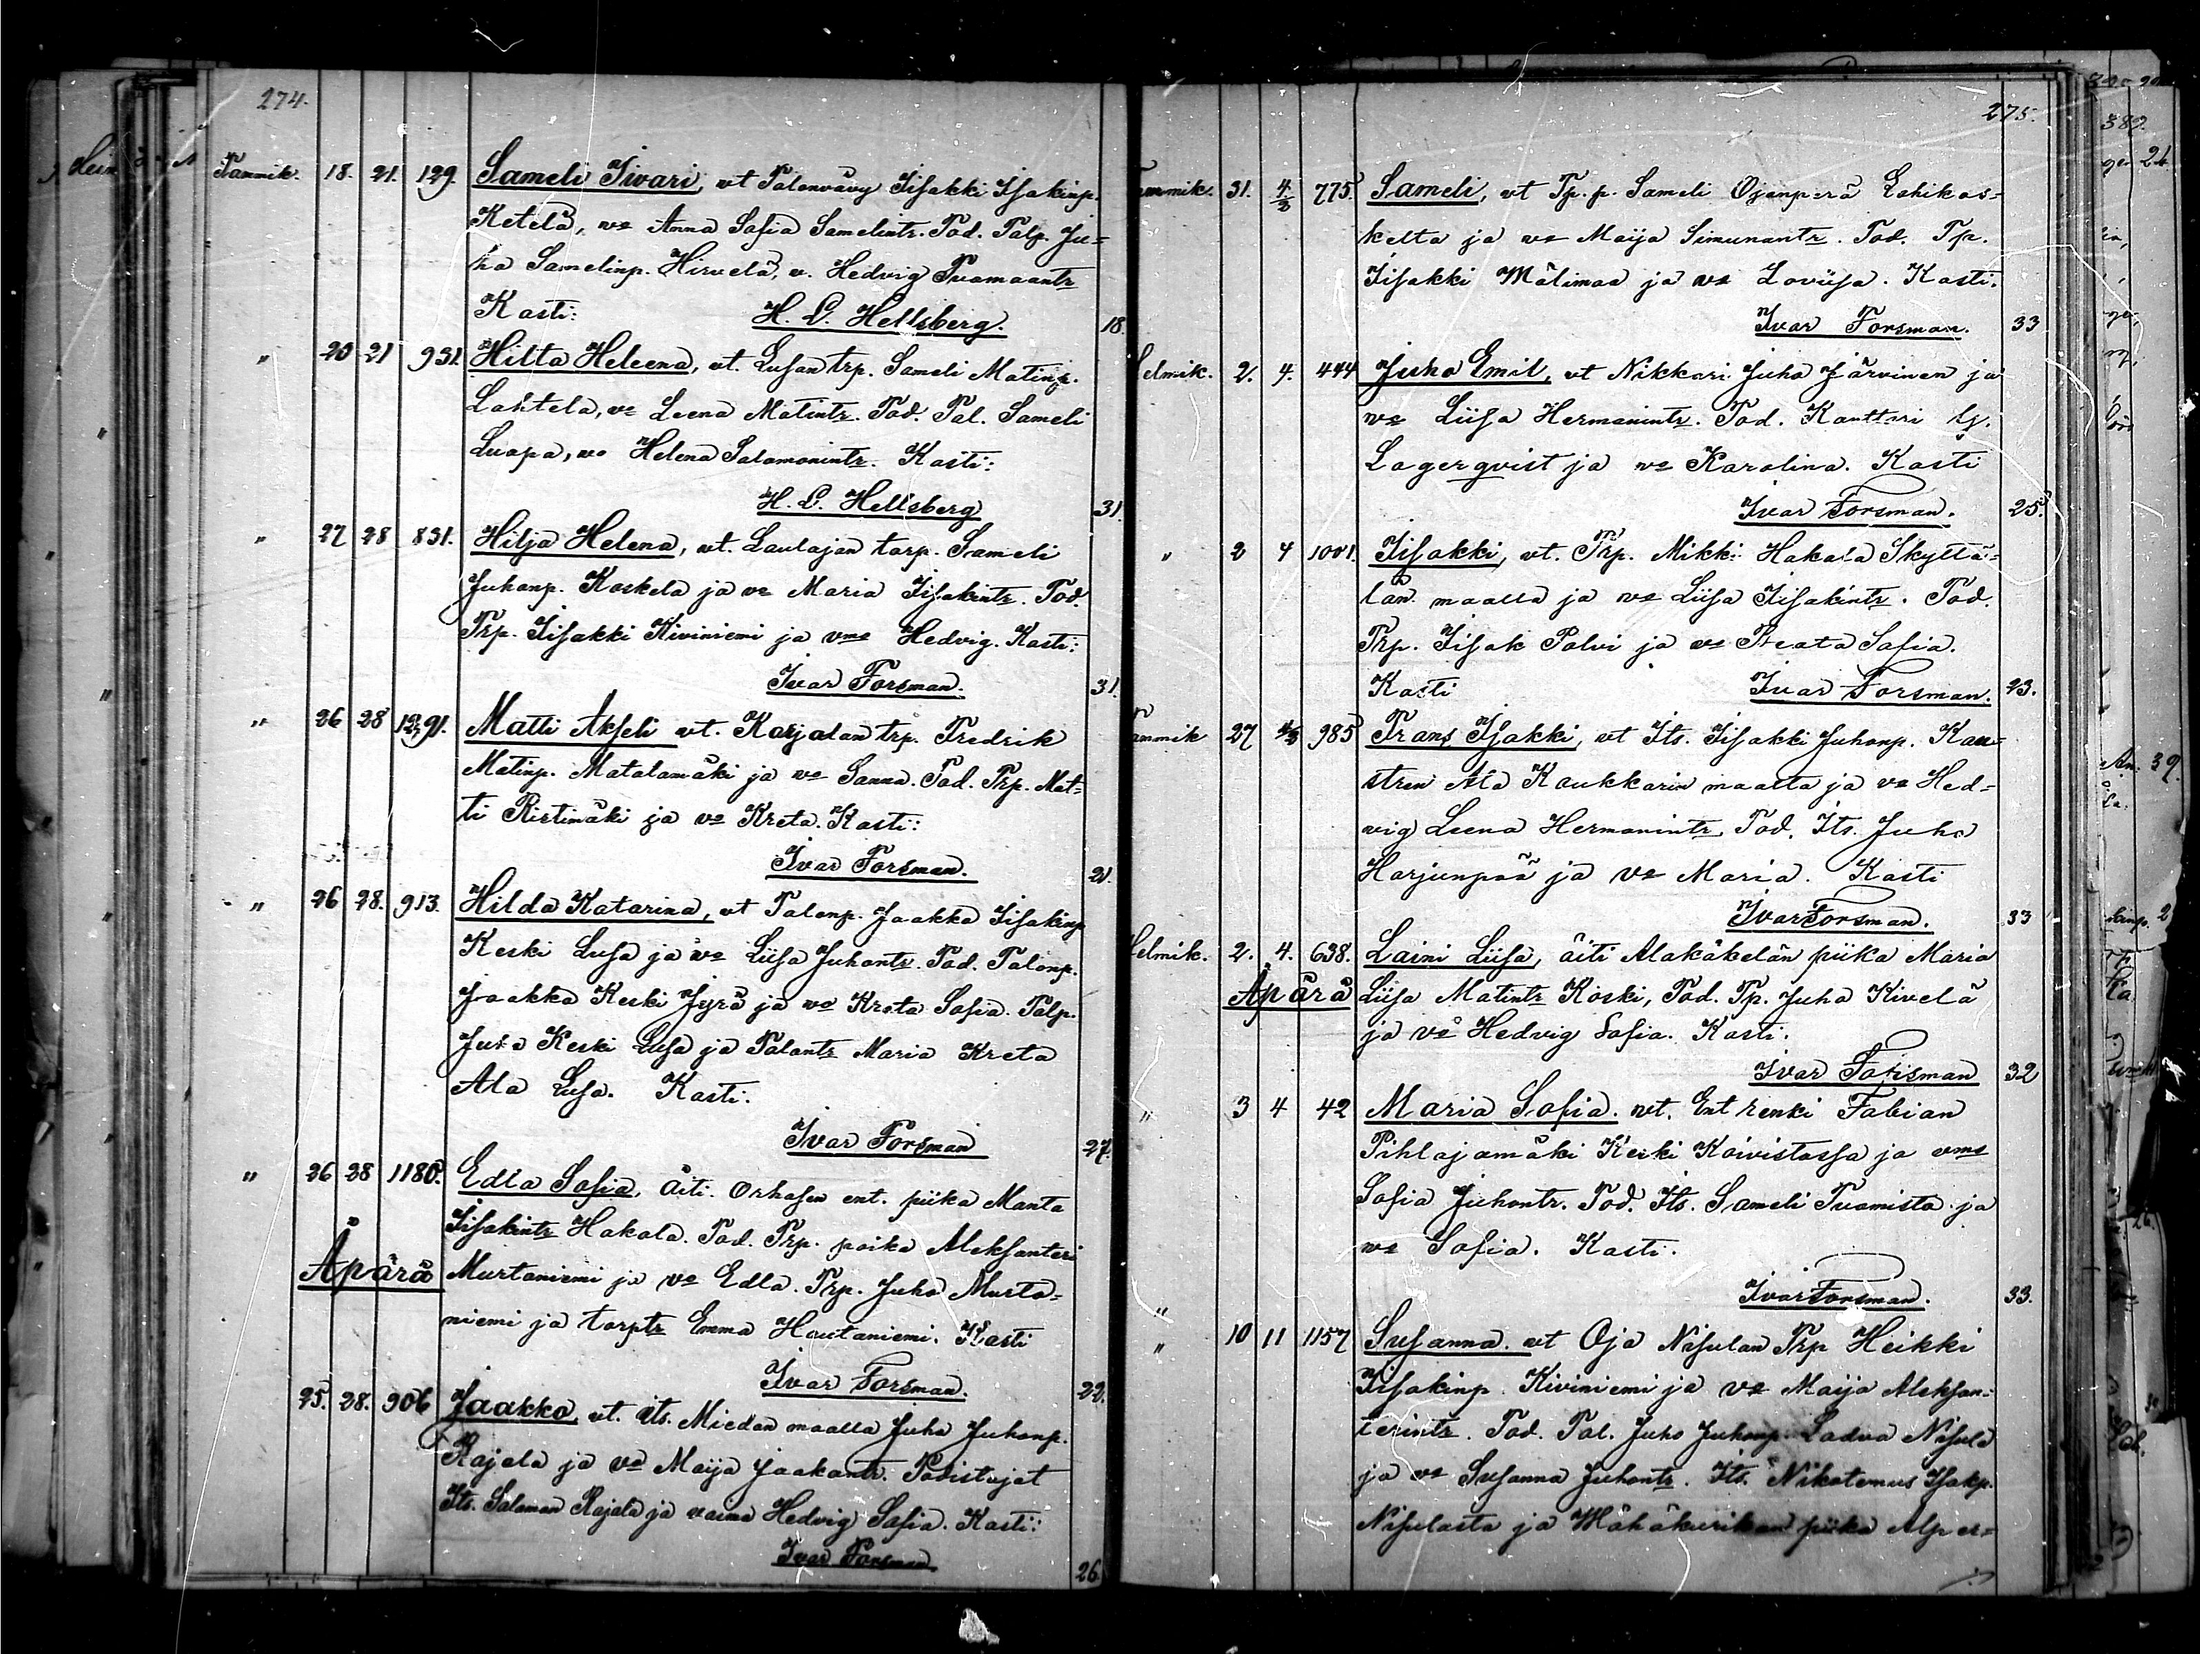 274.
Tammik. 18. 21. 129. Sameli Iivari, vt Talonvävy Iisakki Isakinp.
Ketelä, vo Anna Sofia Samelintr. Tod. Talp. Ju=
ha Samelinp. Hirvelä, v. Hedvig Tuomaantr
Kasti: H. L. Hellsberg. 18.
" 20 21 931. Hilta Heleena, vt. Lusan trp. Sameli Matinp.
Lahtela, vo Leena Matintr. Tod. Tal. Sameli
Luopa, vo Helena Salomonintr. Kasti:
H. L. Hellsberg 31.
" 27 28 831. Hilja Helena, vt. Laulajan torp. Sameli
Juhanp. Koskela ja vo Maria Iisakintr. Tod.
Trp. Iisakki Kiviniemi ja vmo Hedvig. Kasti:
Ivar Forsman. 31.
" 26 28 1291. Matti Akseli vt. Karjalan trp. Fredrik
Matinp. Matalamäki ja vo Sanna. Tod. Trp. Mat=
ti Ristimäki ja vo Kreta. Kasti:
Ivar Forsman. 21.
" 26 28. 913. Hilda Katarina, vt Talonp. Jaakko Iisakinp
Keski Lusa ja vo Liisa Juhontr. Tod. Talonp.
Jaakko Keski Jyrä ja vo Kreta Sofia. Talp.
Juho Keski Lusa ja Talontr Maria Kreta
Ala Lusa. Kasti:
Ivar Forsman 27.
" 26 28 1180. Edla Sofia, äiti. Orhasen ent. piika Manta
Iisakintr Hakala. Tod. Trp. poika Aleksanteri
Äpärä Murtoniemi ja vo Edla. Trp. Juho Murto=
niemi ja torptr Emma Hautaniemi. Kasti
Ivar Forsman. 22.
25. 28. 906 Jaakko, vt. its. Miedan maalla Juho Juhonp.
Rajala ja vo Maija Jaakontr. Todistajat
Its. Salomon Rajala ja vaimo Hedvig Sofia. Kasti:
Ivar Forsman 26
275.
Tammik. 31. 4/2 775. Sameli, vt Tp. p. Sameli Ojanperä Lohikos=
kelta ja vo Maija Simunantr. Tod. Tp.
Iisakki Mälimaa ja vo Loviisa. Kasti.
Ivar Forsman. 33
Helmik. 2. 4. 444 Juho Emil, vt Nikkari Juho Järvinen ja
vo Liisa Hermanintr. Tod. Kanttori G.
Lagerqvist ja vo Karolina. Kasti
Ivar Forsman. 25.
" 2 4 1001. Iisakki, vt. Trp. Mikki Hakala Skyttä=
län maalla ja vo Liisa Iisakintr. Tod.
Trp. Iisak Palvi ja vo Beata Sofia.
Kasti Ivar Forsman. 23.
Tammik 27 4/2 985 Frans Isakki, vt Its. Iisakki Juhonp. Kau=
stren Ala Koukkarin maalta ja vo Hed=
vig Leena Hermanintr. Tod. Its. Juho
Harjunpää ja vo Maria. Kasti
Ivar Forsman. 33
Helmik. 2. 4. 638. Laini Liisa, äiti Alakäkelän piika Maria
Äpärä Liisa Matintr Koski, Tod. Tp. Juho Kivelä
ja vo Hedvig Sofia. Kasti.
Ivar Forsman 32
" 3 4 42 Maria Sofia. vt. Ent renki Fabian
Pihlajamäki Keski Koivistossa ja vmo
Sofia Juhontr. Tod. Its. Sameli Tuomisto ja
vo Sofia. Kasti.
" Ivar Forsman. 33.
" 10 11 1157 Susanna. vt Oja Nisulan Trp Heikki
Iisakinp. Kiviniemi ja vo Maija Aleksan=
terintr. Tod. Tal. Juho Juhonp. Ladva Nisula
ja vo Susanna Juhontr. Its. Nikotemus Isakp.
Nisulasta ja Wähäkurikan piika Alper=